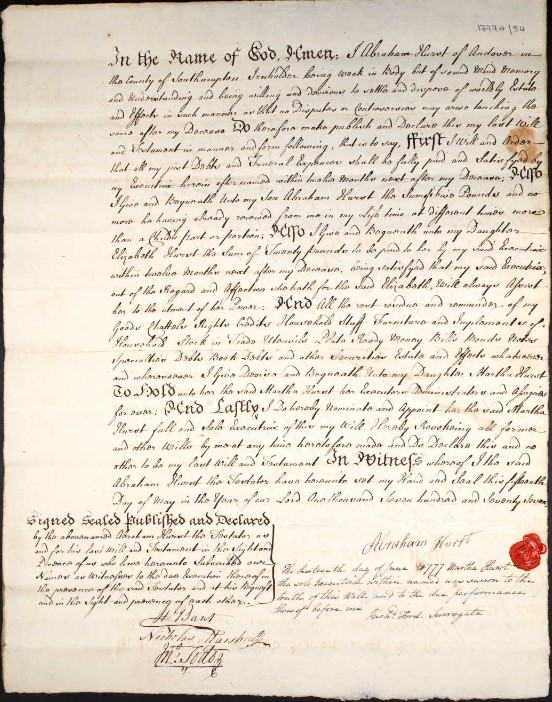 1777A/54
In the Name of God, Amen; I Abraham Hurst of Andover in
the County of Southampton Innholder being weak in Body but of sound Mind Memory
and Understanding and being willing and desirous to settle and dispose of worldly Estate
and Effects in such manner as that no Disputes or Controversies may arise touching the
same after my Decease Do therefore make publish and Declare this my last Will
and Testament in manner and form following, that is to say, First I Will and Order
that all my just Debts and Funeral Expences shall be fully paid and Satisfyed by
my Executrix herein after named within twelve Months next after my Decease, Also
I Give and Bequeath Unto my Son Abraham Hurst the Sum of five Pounds and no
more he having already received from me in my Life time at different times more
than a Childs part or portion; Also I Give and Bequeath unto my Daughter
Elizabeth Hurst the Sum of Twenty pounds to be paid to her by my said Executrix
within twelve Months next after my Decease, being satisfyed that my said Executrix
out of the Regard and Affection she hath for the said Elizabeth, Will always Assist
her to the utmost of her Power; And All the rest residue and remainder of my
Goods Chattels Rights Credits Household Stuff Furniture and Implements of
Household Stock in Trade Utensils Plate Ready Money Bills Bonds Notes
Specialties Debts Book Debts and other Securities Estate and Effects whatsoever
and wheresoever I Give Devise and Bequeath Unto my Daughter Martha Hurst
To Hold unto her the said Martha Hurst her Executors Administrators and Assignes
for ever; And Lastly I Do hereby Nominate and Appoint her the said Martha
Hurst full and Sole Executrix of this my Will Hereby Revokeing all former
and other Wills by me at any time heretofore made and Do Declare this and no
other to be my last Will and Testament In Witness whereof I the said
Abraham Hurst the Testator have hereunto set my Hand and Seal this fifteenth
Day of May in the Year of our Lord One thousand Seven hundred and Seventy Seven
Signed Sealed Published and Declared
by the abovenamed Abraham Hurst the Testator, as
and for his last Will and Testament in the Sight and
Presence of us who have hereunto Subscribed our
Names as Witnesses to the due Execution thereof in
the presence of the said Testator and at his Request
and in the Sight and presence of each other.
Abraham Hurst
The Sixteenth day of June 1777 Martha Hurst
the sole executrix within named was sworn to the
truth of this Will and to the due performance
thereof before me
Richd. Ford. Surrogate
Nicholas Marshall